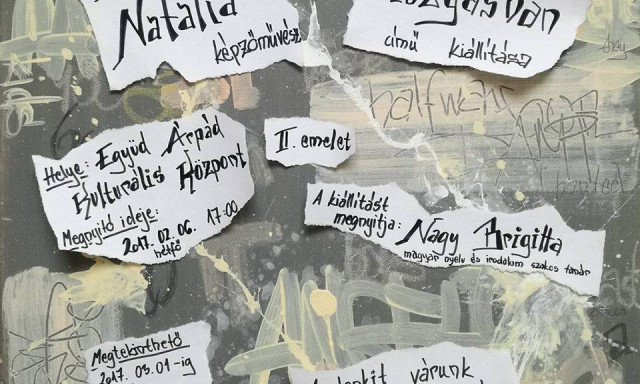 Natália
képzőművész
című kiállítása
Helye: Együd Árpád
Kulturális Központ
Megnyitó ideje:
2017. 02. 06. 17:00
hétfő
II. emelet
A kiállítást
megnyitja: Nagy Brigitta
magyar nyelv és irodalom szakos tanár
Megtekinthető
2017. 03. 01-ig
várunk
halfway